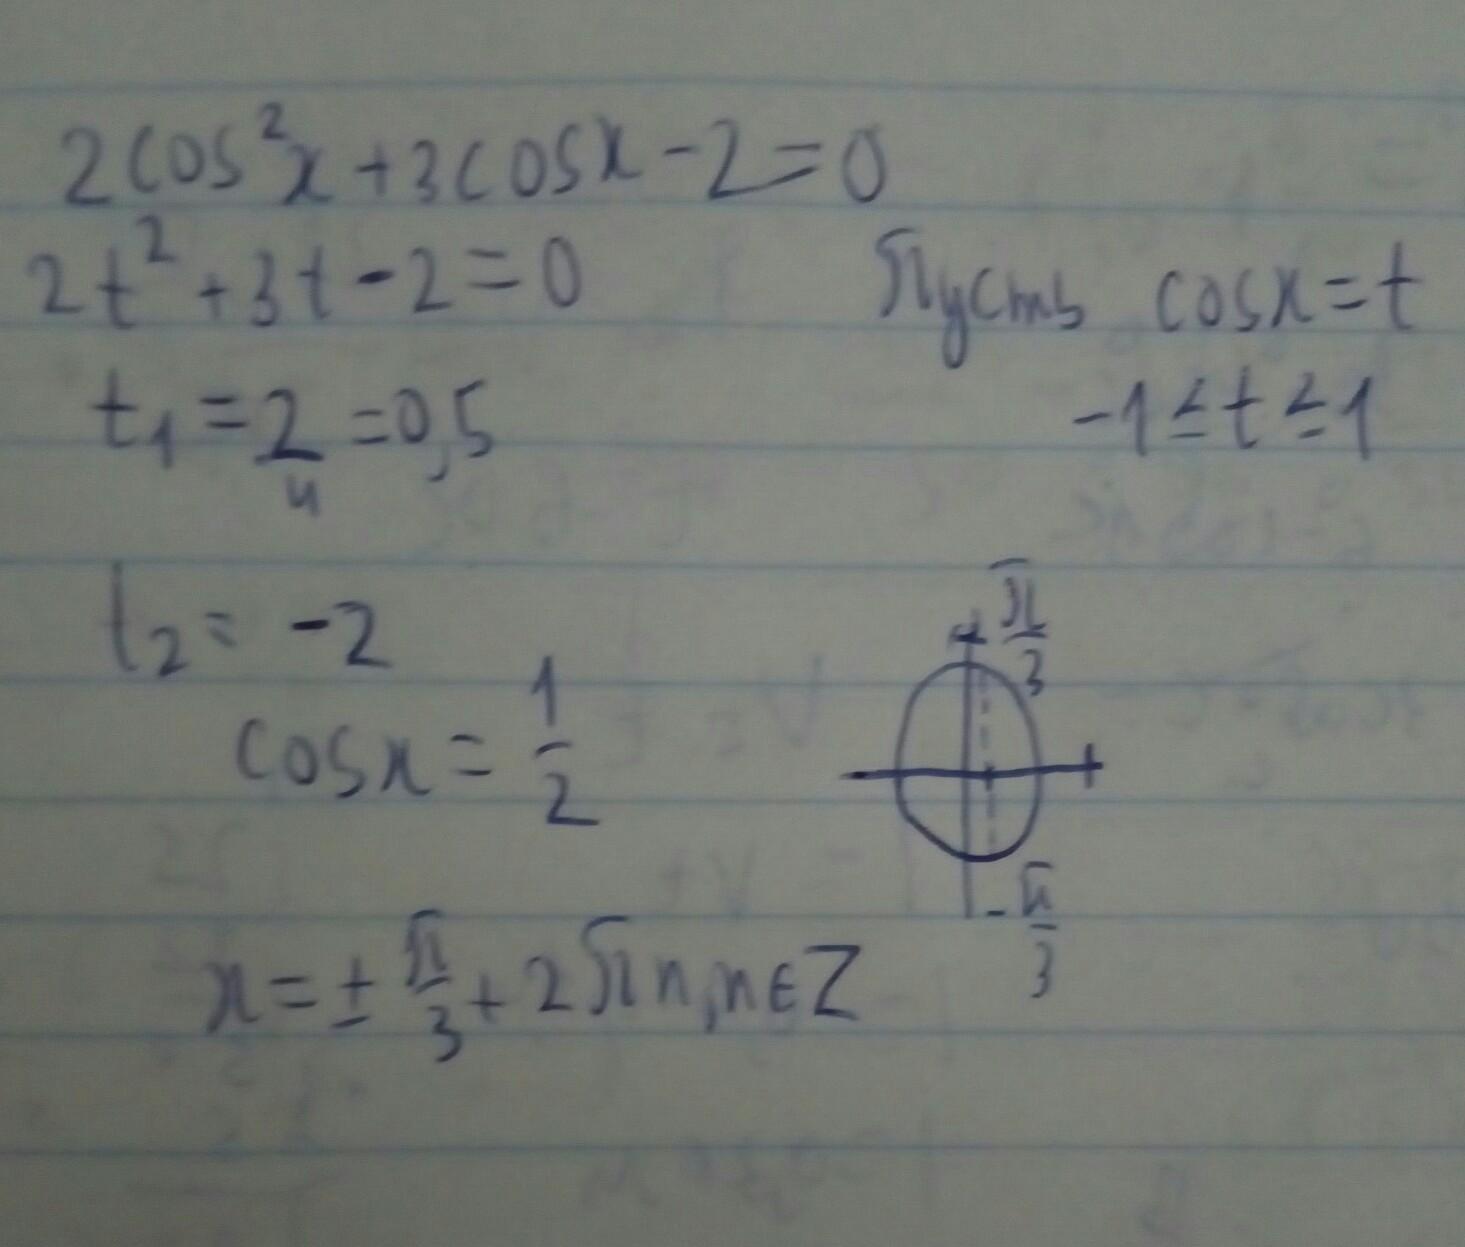 2cos²x+3cosx-2=0
2t²+3t-2=0 Пусть cosx=t
t₁=2/4=0,5 -1≤t≤1
t₂=-2
π/3
cosx=1/2
-π/3
x=±π/3+2πn,n∈Z